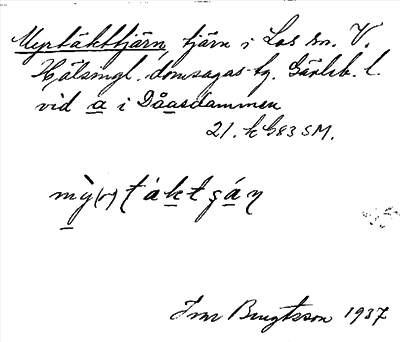 Myrtäkttjärn, tjärn i Los sn. V.
Hälsingl. domsagas tg. Gävleb. l.
vid a i Dåasdammen
21. k 683 SM.
mỳ(r)táktgáɳ
Ivar Bengtsson 1937